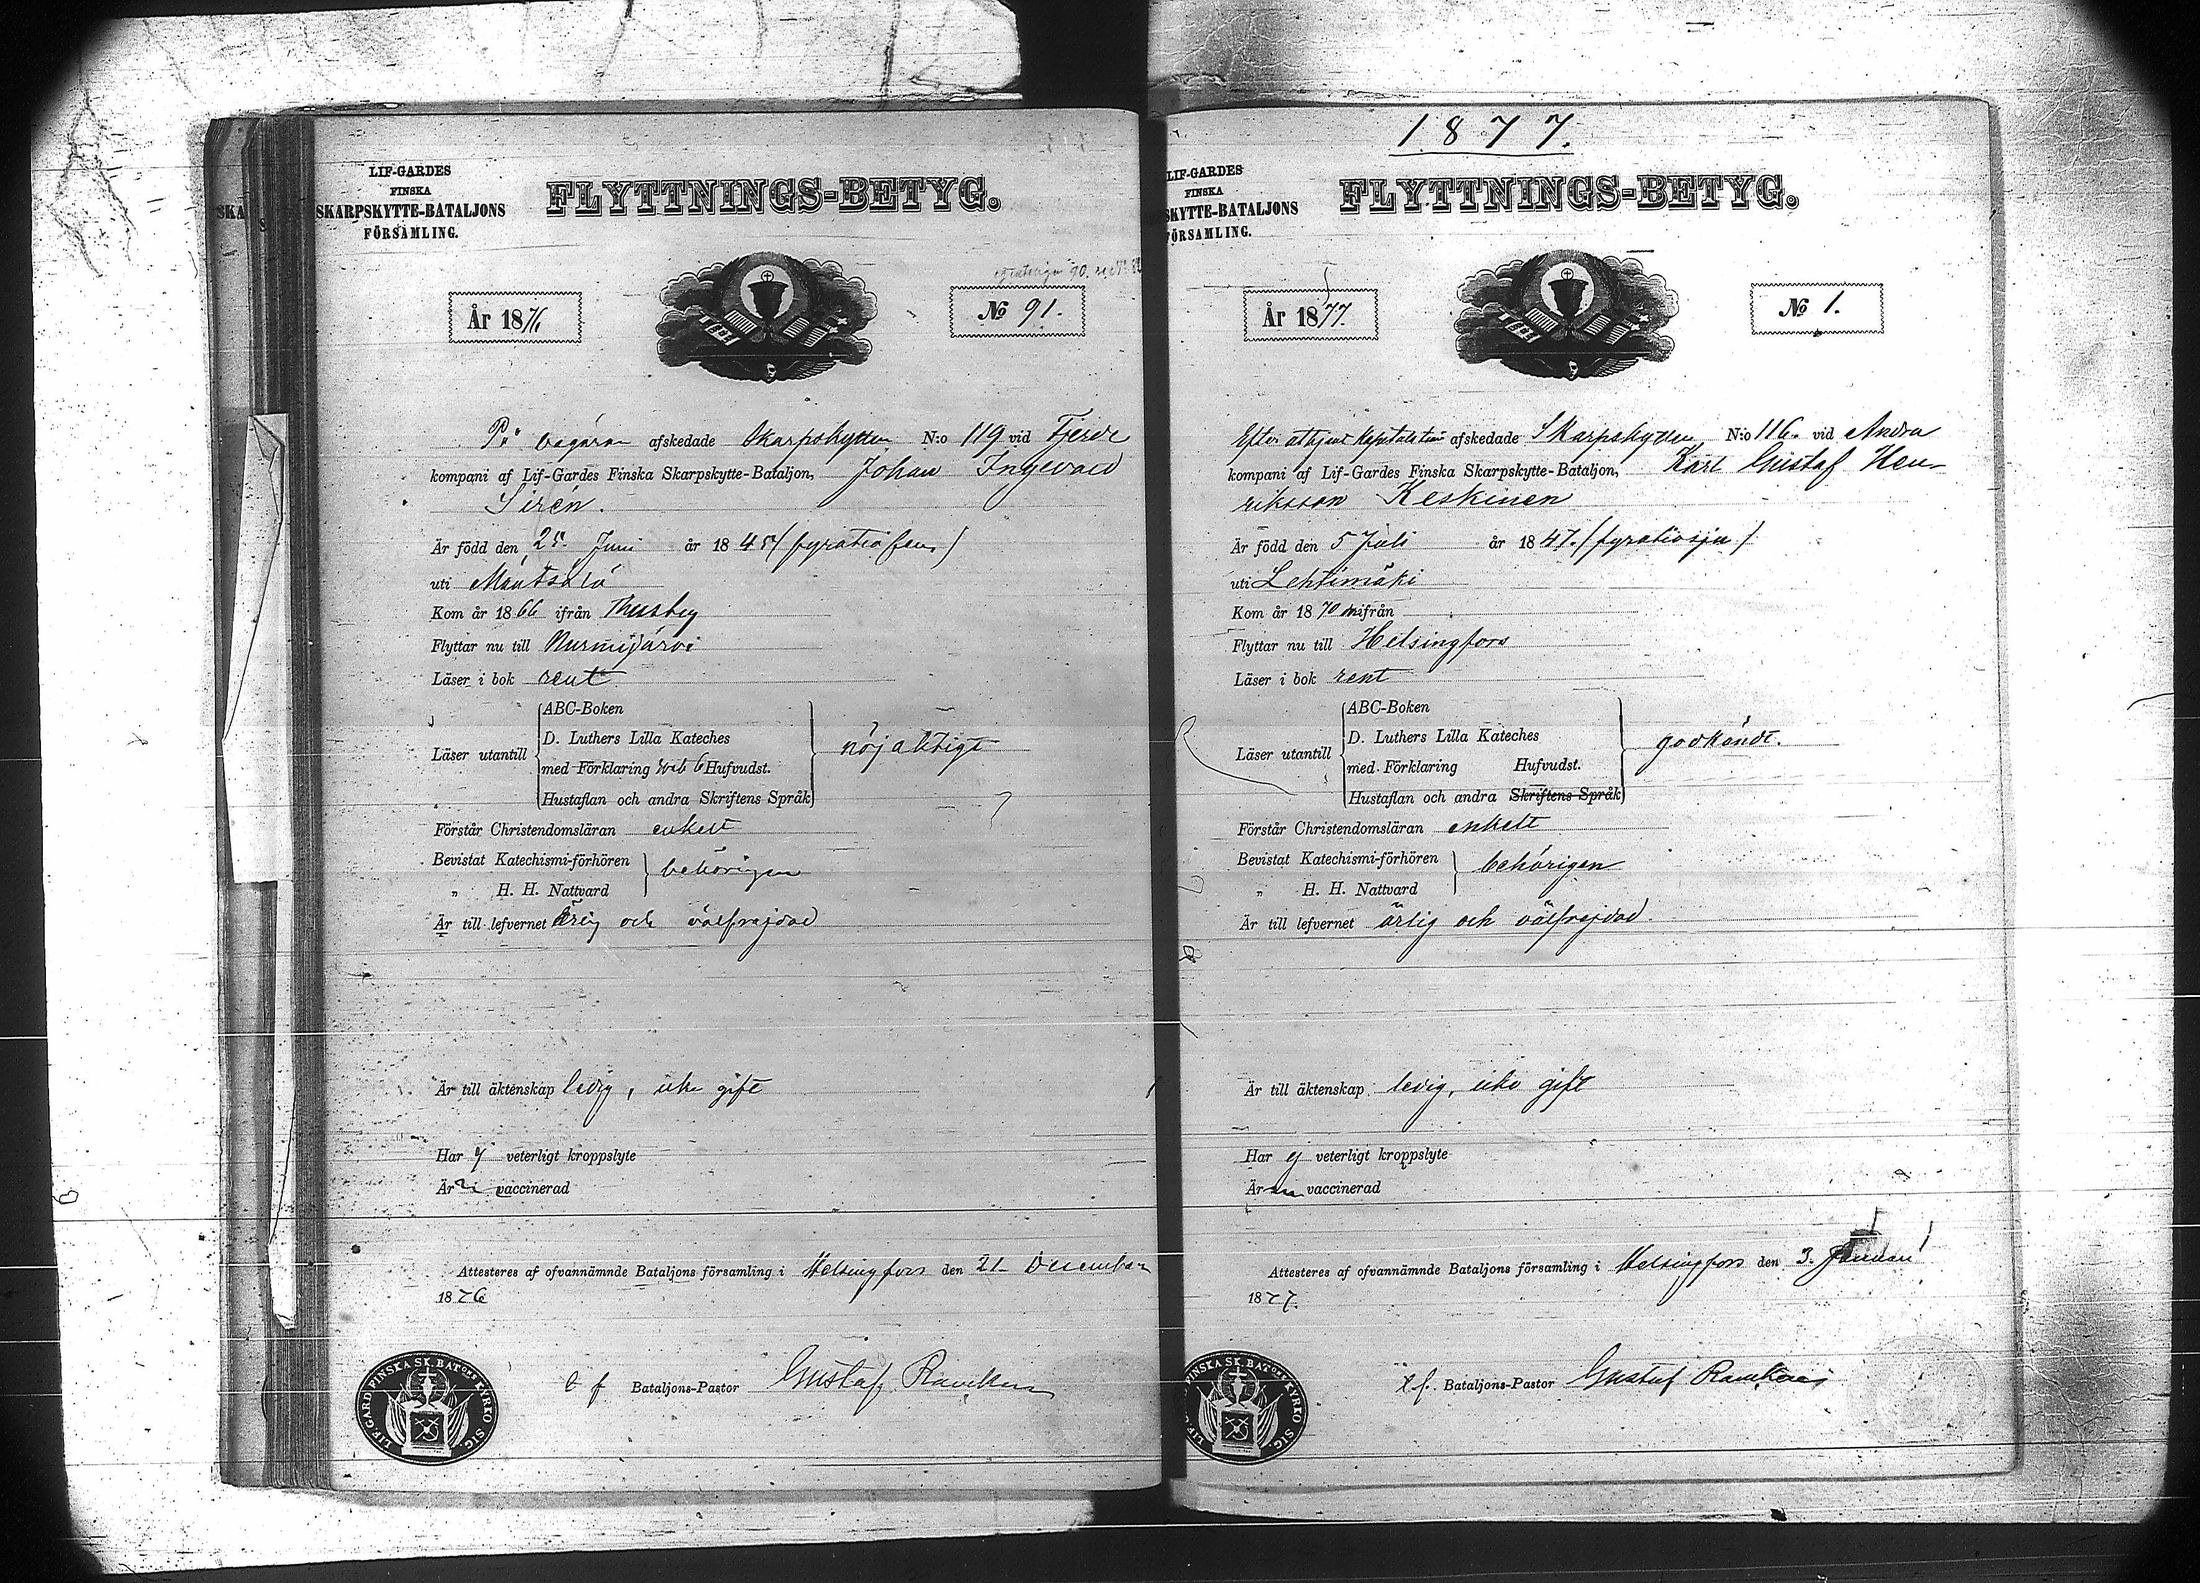 LIF-GARDES
FINSKA
SKARPSKYTTE-BATALJONS
FÖRSAMLING.
FLYTTNINGS-BETYG.
År 1876
No 91.
På begäran afskedade Skarpskytten N:o 119 vid Fjerde
kompani af Lif-Gardes Finska Skarpskytte-Bataljon, Johan Ingevald
Sirén.
Är född den 25. Juni år 1845 (fyratiofem)
uti Mäntsälä
Kom år 1866 ifrån Thusby
Flyttar nu till Nurmijärvi
Läser i bok rent
Läser utantill
ABC-Boken
D. Luthers Lilla Kateches
med Förklaring 6 Hufvudst.
Hustaflan och andra Skriftens Språk
nöjaktigt
Förstår Christendomsläran enkelt
Bevistat Katechismi-förhören
„ H. H. Nattvard
behörigen
Är till lefvernet ärlig och välfrejdad
Är till äktenskap ledig, icke gift
Har ej veterligt kroppslyte
Är vaccinerad
Attesteres af ofvannämnde Bataljons församling i Helsingfors den 21. December
1876
e f Bataljons-Pastor Gustaf
LIF. GARD. FINSKA SK. BATONS KYRKO SIG.
1877.
LIF-GARDES
FINSKA
SKYTTE-BATALJONS
FÖRSAMLING.
FLYTTNINGS-BETYG.
År 1877.
No 1.
Efter afskedade Skarpskytten N:o 116. vid Andra
kompani af Lif-Gardes Finska Skarpskytte-Bataljon, Karl Gustaf Hen-
riksson Keskinen
Är född den 5 Juli år 1847. (fyratiosju)
uti Lehtimäki
Kom år 1870 ifrån
Flyttar nu till Helsingfors
Läser i bok rent
Läser utantill
ABC-Boken
D. Luthers Lilla Kateches
med Förklaring Hufvudst.
Hustaflan och andra Skriftens Språk
godkändt.
Förstår Christendomsläran enkelt
Bevistat Katechismi-förhören
„ H. H. Nattvard
behörigen
Är till lefvernet ärlig och välfrejdad
Är till äktenskap ledig, icke gift
Har ej veterligt kroppslyte
Är vaccinerad
Attesteres af ofvannämnde Bataljons församling i Helsingfors den 3. Januari
1877.
e f. Bataljons-Pastor Gustaf
FINSKA SK. BATONS KYRKO SIG.